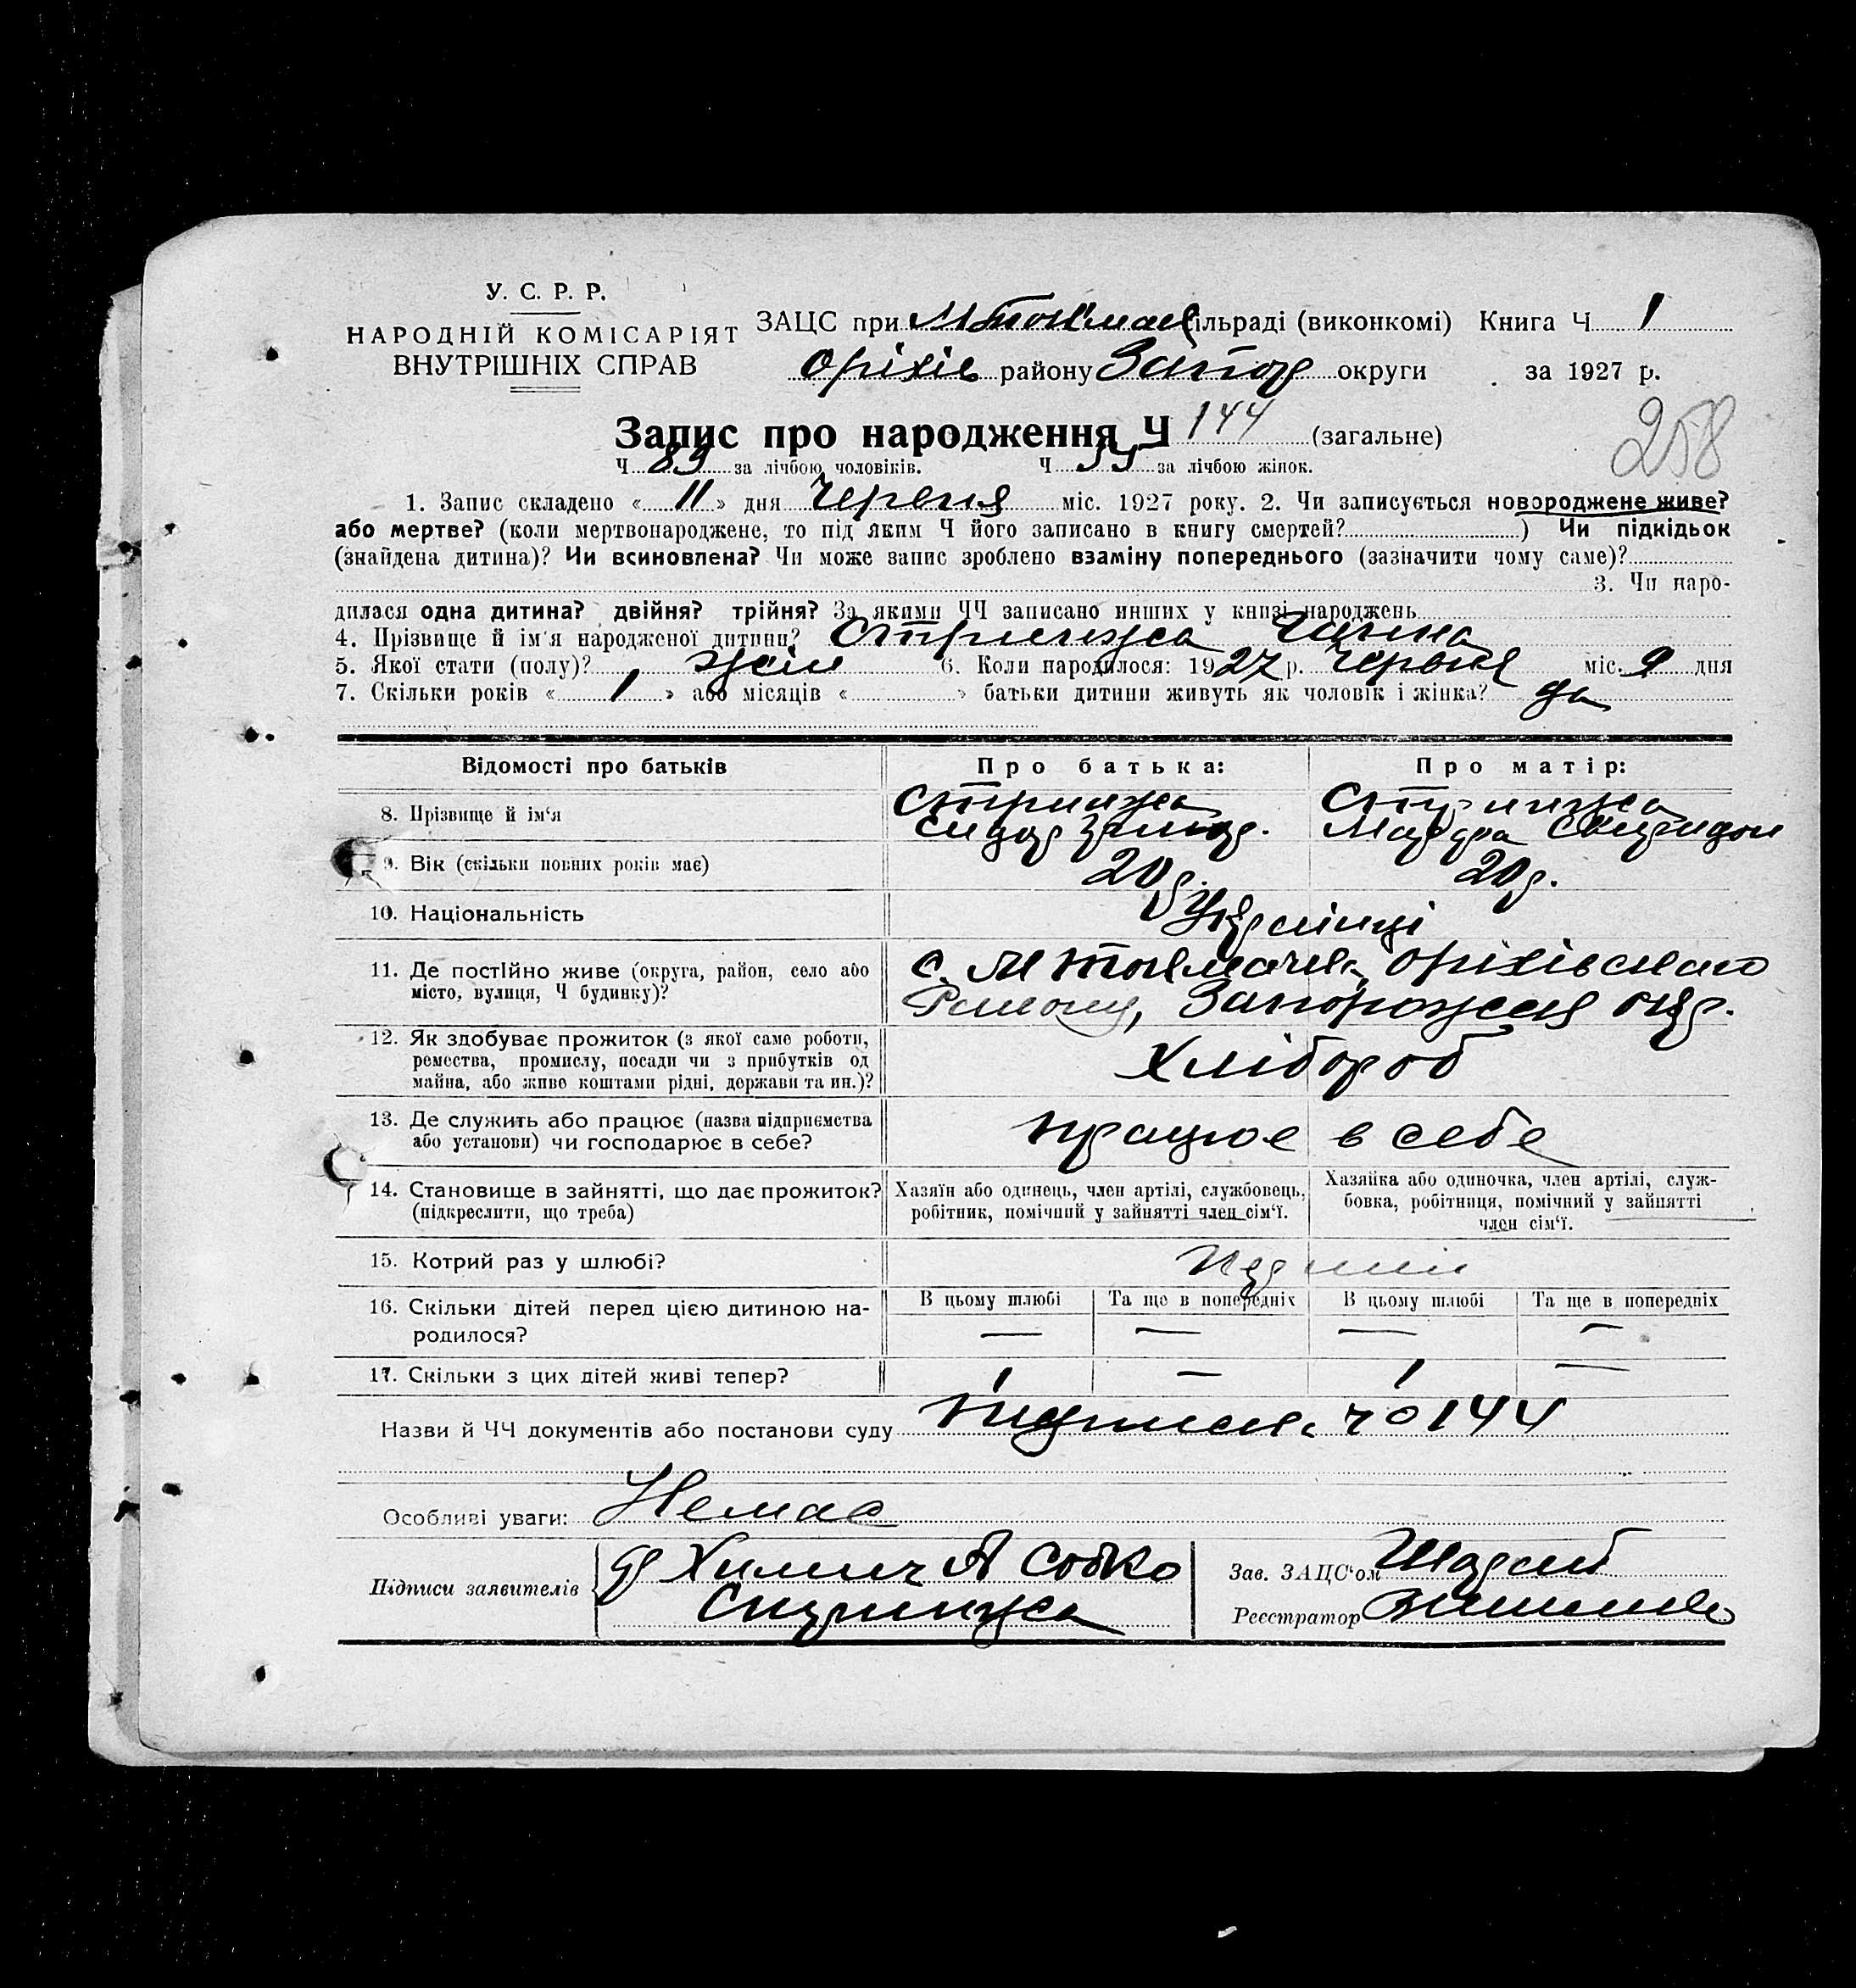 У. С. Р. Р.
НАРОДНІЙ КОМІСАРІЯТ
ВНУТРІШНІХ СПРАВ
ЗАЦС при М Токмац сільраді (виконкомі) Книга Ч 1
Оріхів району Запор округи за 1927 р.
Запис про народження Ч 144 (загальне)
258
Ч 89 за лічбою чоловіків. Ч 55 за лічбою жінок.
1. Запис складено « 11 » дня Червня міс. 1927 року. 2. Чи записується новороджене живе?
або мертве? (коли мертвонароджене, то під яким Ч його записано в книгу смертей? ) Чи підкідьок
(знайдена дитина)? Чи всиновлена? Чи може запис зроблено взаміну попереднього (зазначити чому саме)?
3. Чи наро-
дилася одна дитина? двійня? трійня? За якими ЧЧ записано инших у книзі народжень
4. Прізвище й ім'я народженої дитини? Стрижка Галина
5. Якої стати (полу)? жін 6. Коли народилося: 1927 р. Червня міс. 9 дня
7. Скільки років « 1 » або місяців « » батьки дитини живуть як чоловік і жінка? да
Відомості про батьків Про батька: Про матір:
8. Прізвище й ім'я Стрижка Стрижка
Сидор
9. Вік (скільки повних років має) 20 р. 20 р.
10. Національність Українці
11. Де постійно живе (округа, район, село або с. М Токмачка, Оріхівського
місто, вулиця, Ч будинку)? Району, Запорожжя окр.
12. Як здобуває прожиток (з якої саме роботи,
ремества, промислу, посади чи з прибутків од Хлібороб
майна, або живе коштами рідні, держави та ин.)?
13. Де служить або працює (назва підприємства
або установи) чи господарює в себе? працює в себе
14. Становище в зайнятті, що дає прожиток? Хазяїн або одинець, член артілі, службовець, Хазяйка або одиночка, член артілі, служ-
(підкреслити, що треба) робітник, помічний у зайнятті член сім'ї. бовка, робітниця, помічний у зайнятті
член сім'ї.
15. Котрий раз у шлюбі? Перший
16. Скільки дітей перед цією дитиною на- В цьому шлюбі Та ще в попередніх В цьому шлюбі Та ще в попередніх
родилося? — — — —
17. Скільки з цих дітей живі тепер? 1 — 1 —
Назви й ЧЧ документів або постанови суду Підписка Ч 0144
Особливі уваги: Немає
Підписи заявителів Химич А Собко
Зав. ЗАЦС'ом
Реєстратор